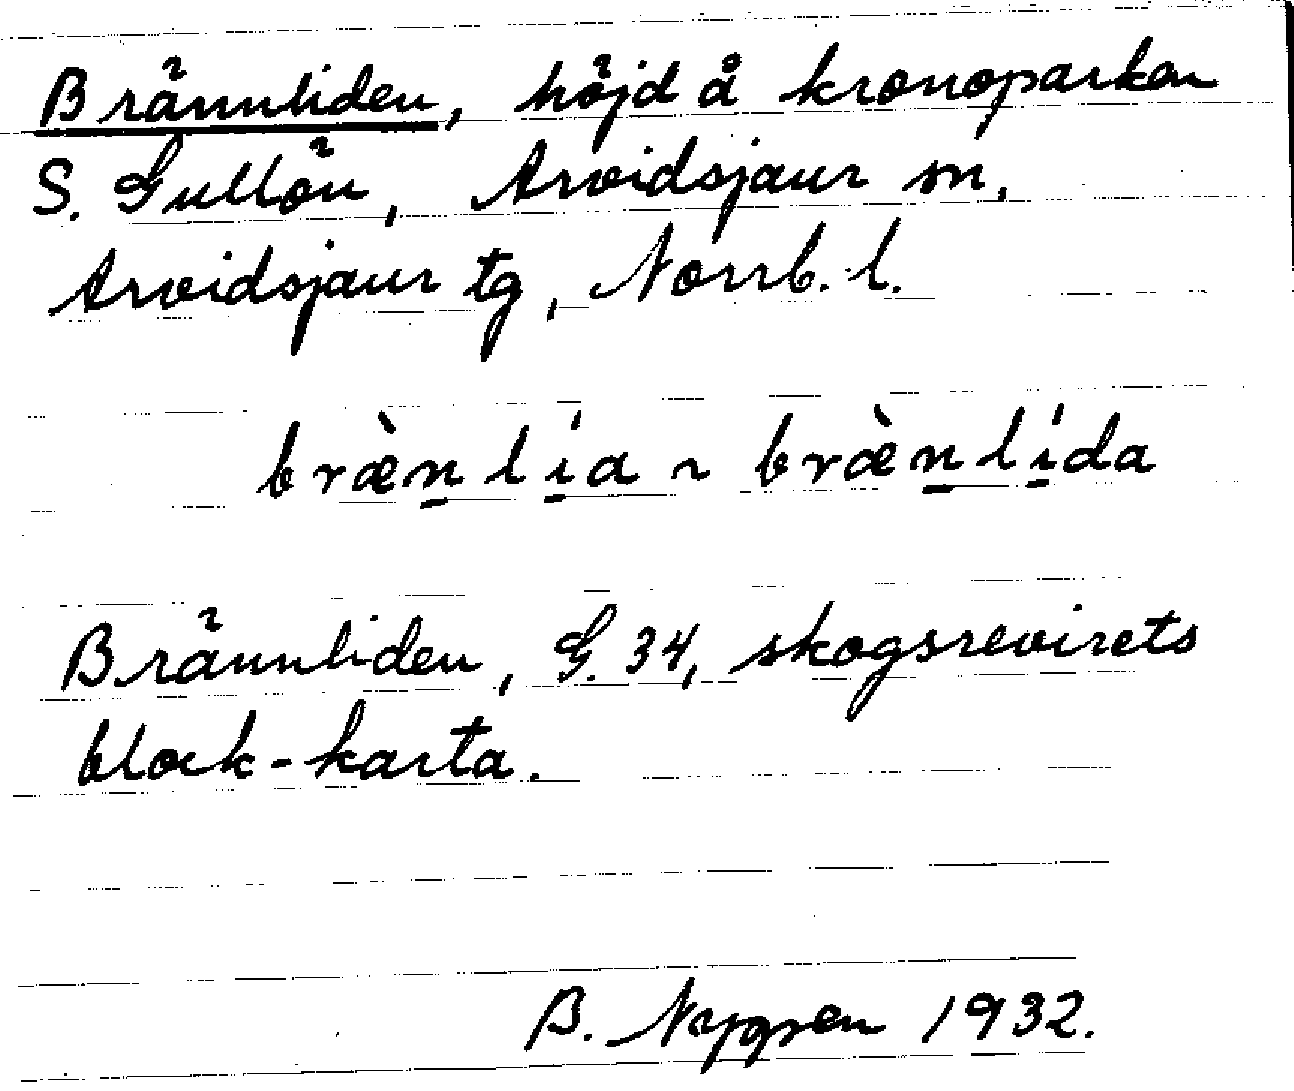 Brännliden, höjd å kronoparken
S. Gullön, Arvidsjaur sn,
Arvidsjaur tg, Norrb. l.
bræ̀n̲lí̲a ~ bræ̀n̲lí̲da
Brännliden, G. 34, skogsrevirets
block-karta.
B. Nygren 1932.